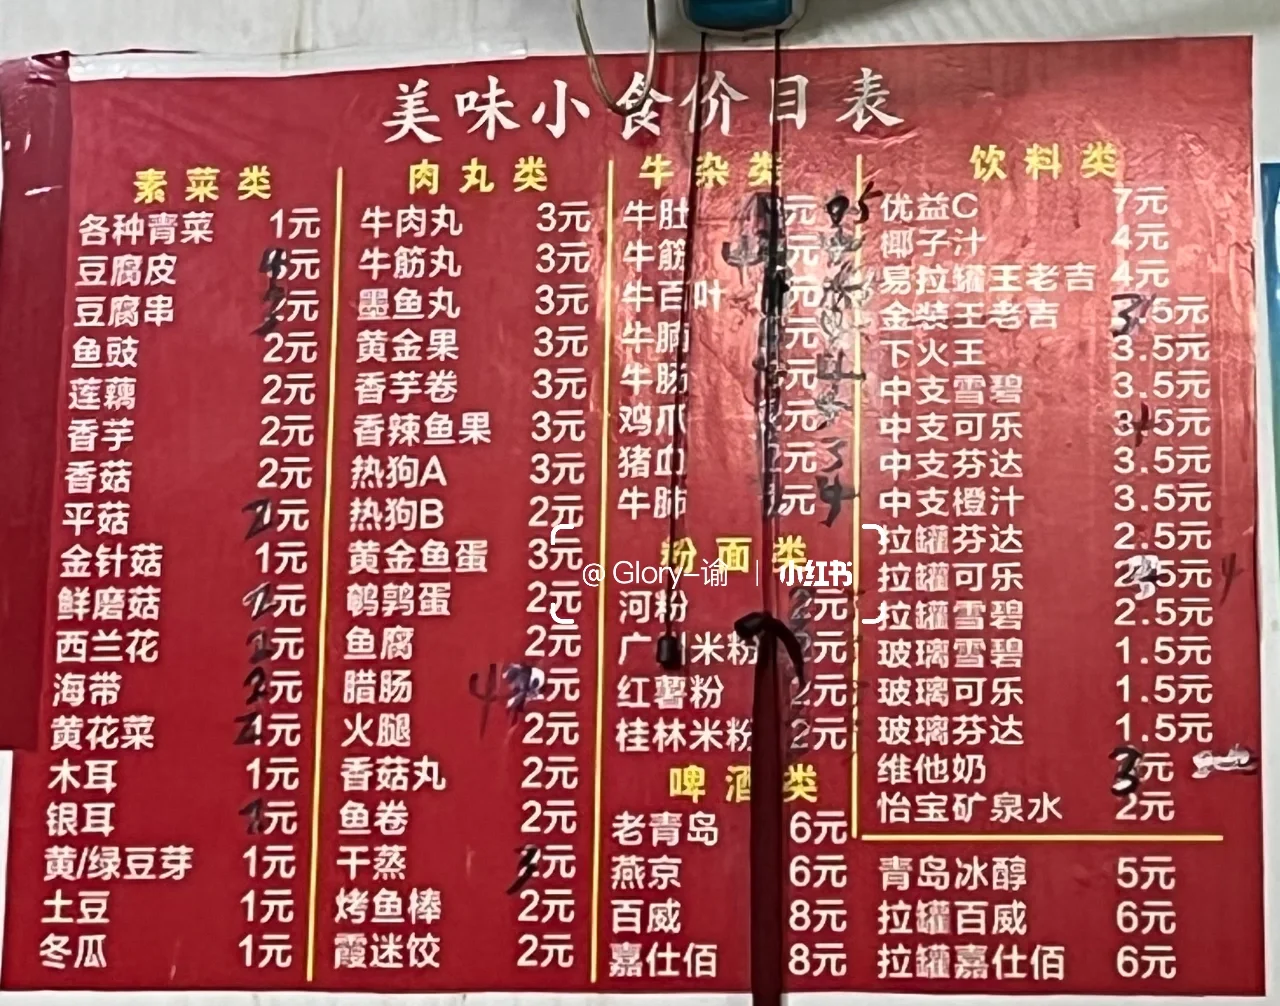 美味小食价目表
素菜类
各种青菜 1元
豆腐皮 元
豆腐串 元
鱼豉 2元
莲藕 2元
香芋 2元
香菇 2元
平菇 元
金针菇 1元
鲜磨菇 元
西兰花 元
海带 元
黄花菜 元
木耳 1元
银耳 元
黄/绿豆芽 1元
土豆 1元
冬瓜 1元
肉丸类
牛肉丸 3元
牛筋丸 3元
墨鱼丸 3元
黄金果 3元
香芋卷 3元
香辣鱼果 3元
热狗A 3元
热狗B 2元
黄金鱼蛋 3元
鹌鹑蛋 2元
鱼腐 2元
腊肠 4 元
火腿 2元
香菇丸 2元
鱼卷 2元
干蒸 3元
烤鱼棒 2元
霞迷饺 2元
牛杂类
牛肚 元
牛筋 元
牛百叶 元
牛腩 元
牛肠 元
鸡爪 元
猪血 元 3
牛肺 元 4
粉面类
河粉 2元
广州米粉 2元
红薯粉 2元
桂林米粉 2元
啤酒类
老青岛 6元
燕京 6元
百威 8元
嘉仕佰 8元
饮料类
优益C 7元
椰子汁 4元
易拉罐王老吉 4元
金装王老吉 3.5元
下火王 3.5元
中支雪碧 3.5元
中支可乐 3.5元
中支芬达 3.5元
中支橙汁 3.5元
拉罐芬达 2.5元
拉罐可乐 2.5元 4
拉罐雪碧 2.5元
玻璃雪碧 1.5元
玻璃可乐 1.5元
玻璃芬达 1.5元
维他奶 3元
怡宝矿泉水 2元
青岛冰醇 5元
拉罐百威 6元
拉罐嘉仕佰 6元
@Glory-谕 | 小红书